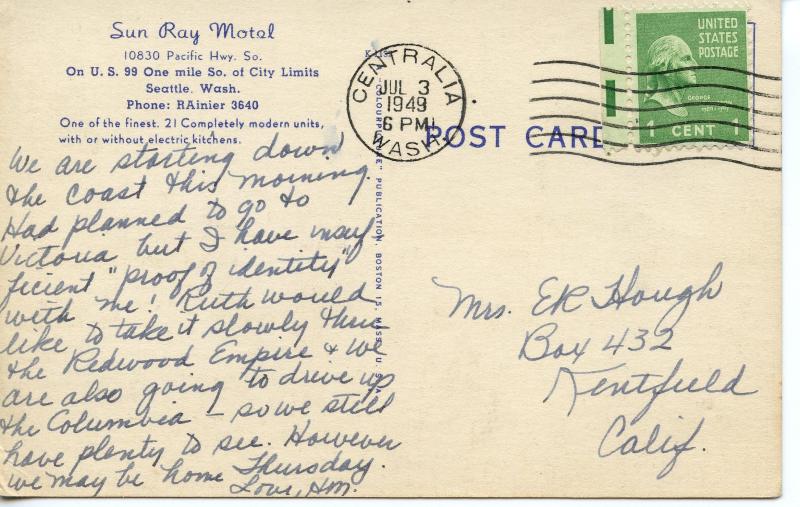 Sun Ray Motel
10830 Pacific Hwy. So.
On U. S. 99 One mile So. of City Limits
Seattle, Wash.
Phone: RAinier 3640
One of the finest. 21 Completely modern units,
with or without electric kitchens.
We are starting down
the coast this morning.
Had planned to go to
Victoria but I have insuf-
ficient "proof of identity"
with me! Ruth would
like to take it slowly thru
the Redwood Empire & we
are also going to drive up
the Columbia - so we still
have plenty to see. However
we may be home Thursday.
Love, HM.
PUBLICATION, BOSTON 15, MASS., U.S.A.
CENTRALIA
JUL 3
1949
6 PM
WASH.
POST CARD
UNITED
STATES
POSTAGE
GEORGE
1 CENT 1
Mrs. ER Hough
Box 432
Kentfield
Calif.